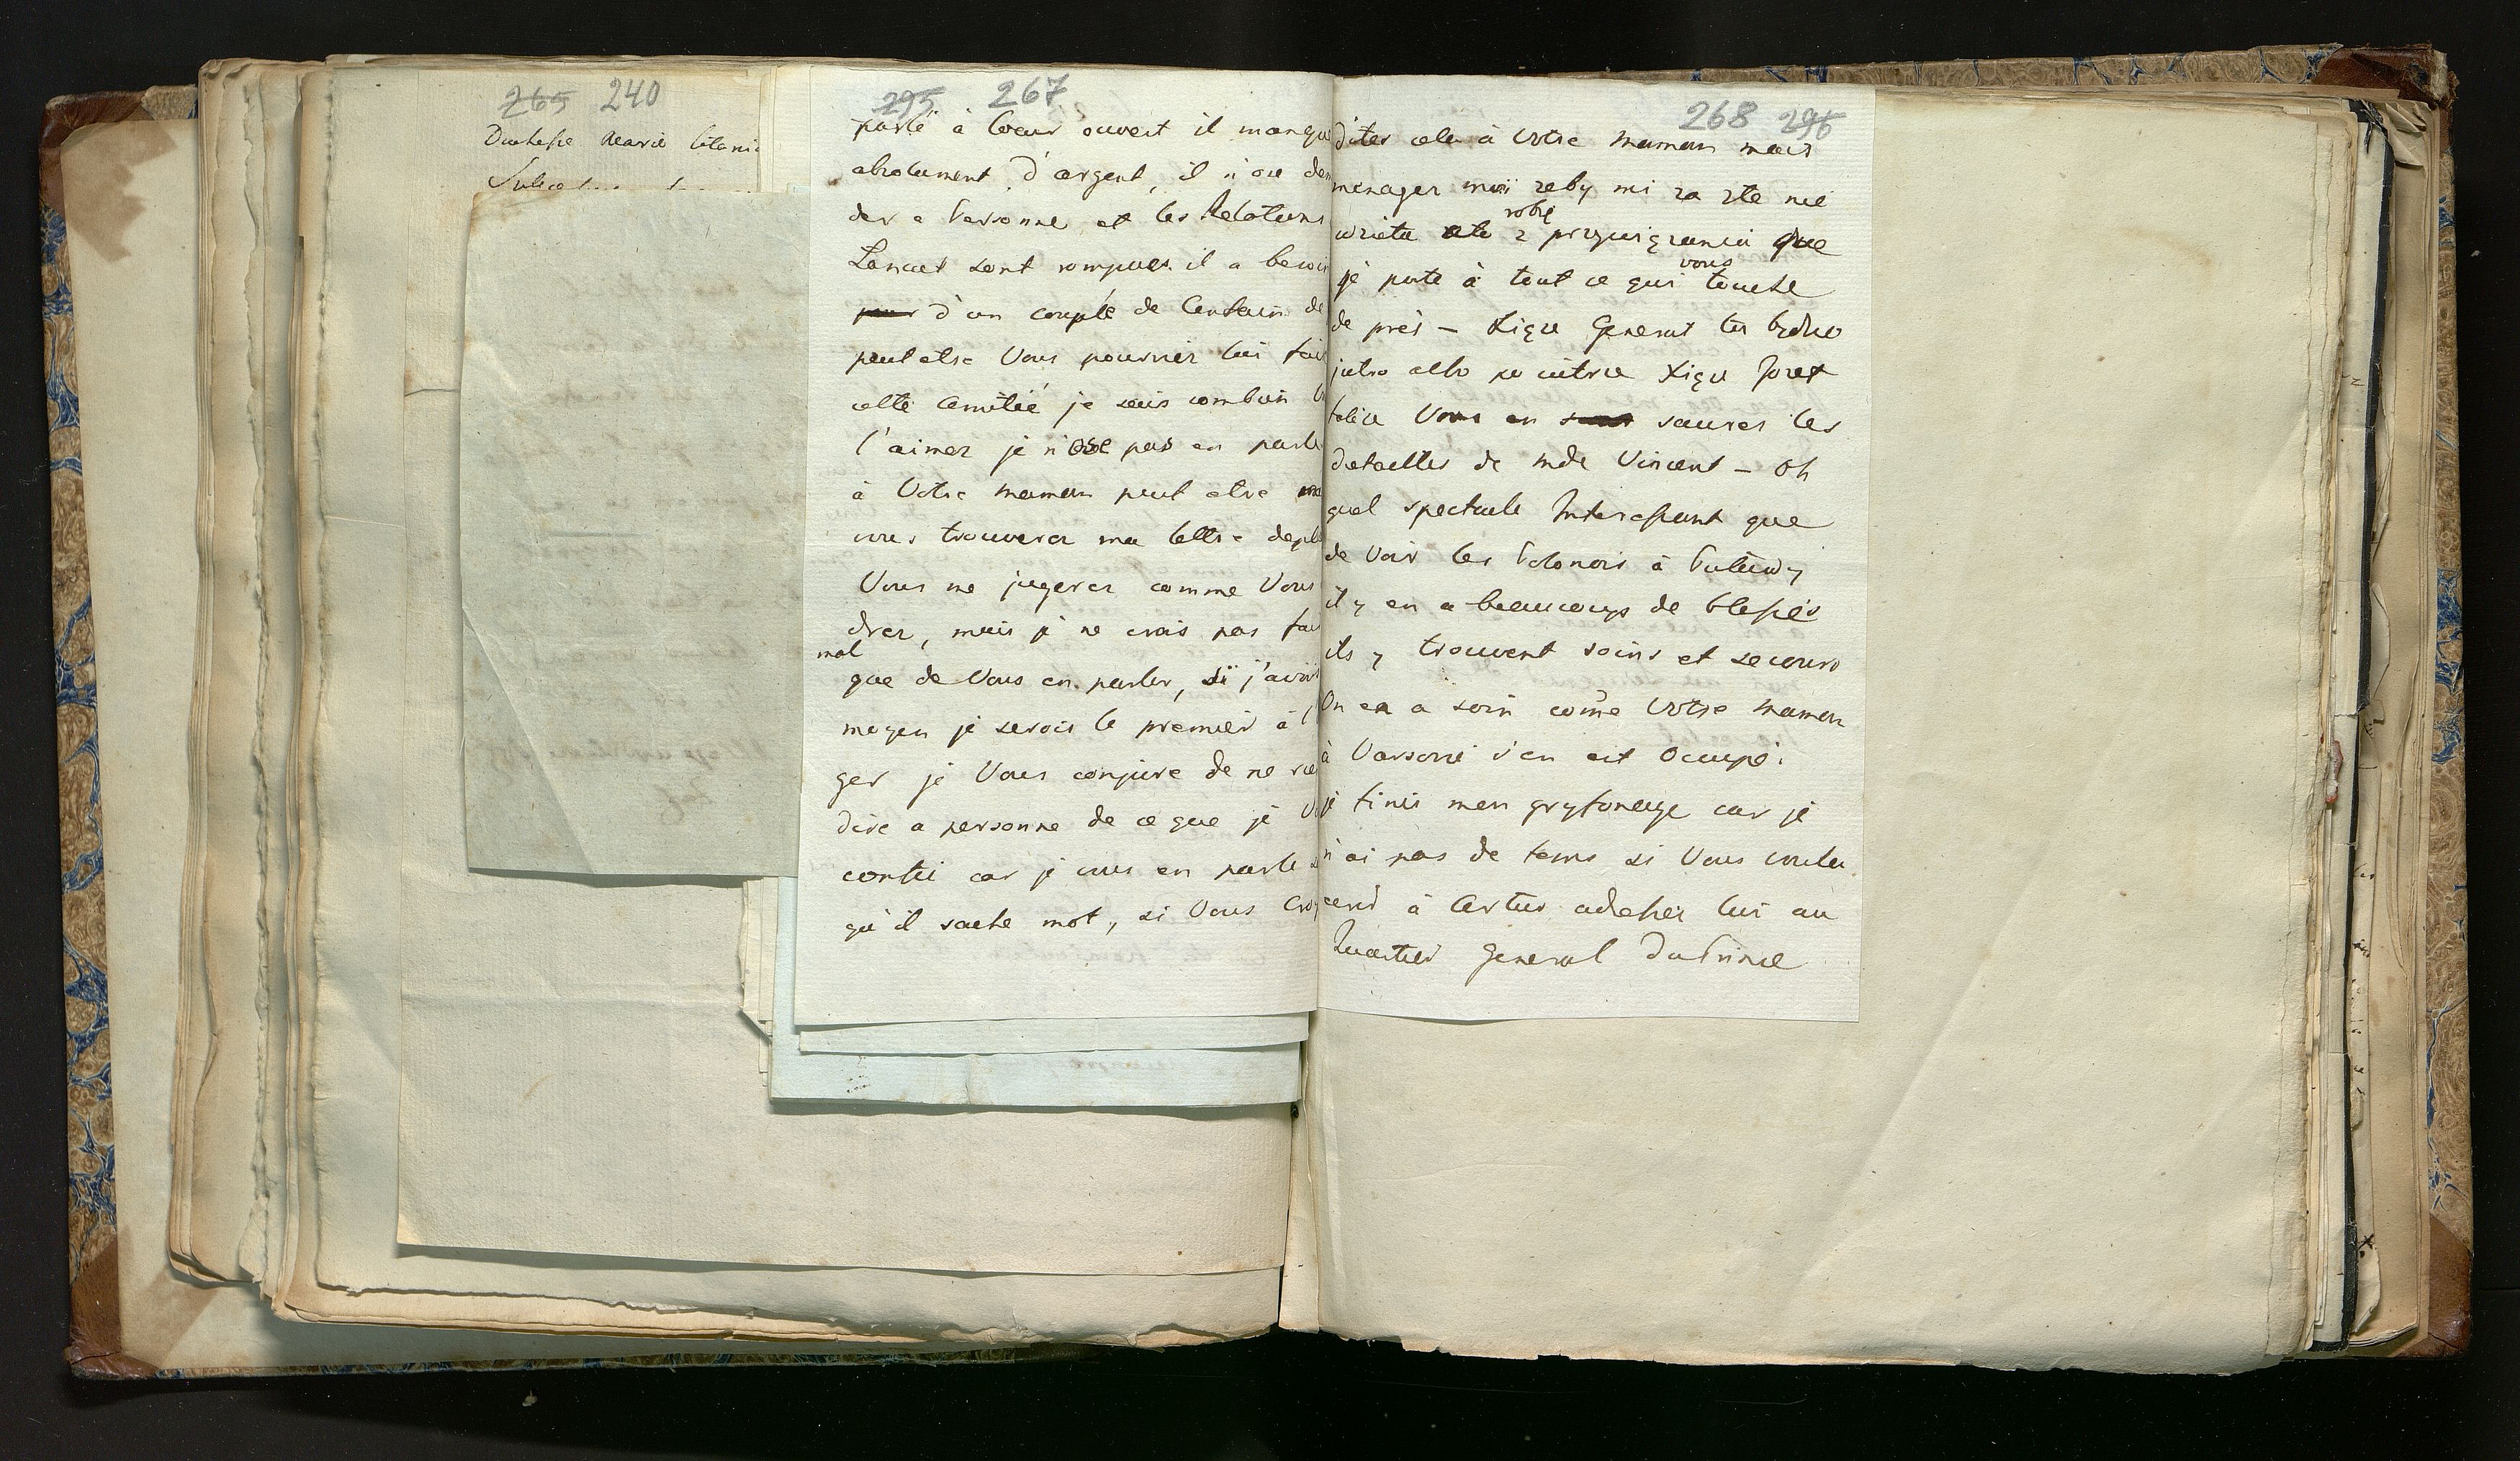 265 240
Duchesse Marie
295 267
parlé à Cœur ouvert il manque
absolument d'argent, il n'ose dem
der a Personne et les Relations
Lancut sont rompues il a besoin
d'un couple de Centain de
peut etre Vous pourriez lui fair
cette Amitiée je sais combien
l'aimez je n'ose pas en parle
à Votre maman peut etre
vous trouverez ma lettre depl
Vous me jugerez comme Vous
drez, mais je ne crois pas fair
mal
que de Vous en parler, si j'avois
moyen je serois le premier à l'
ger je Vous conjure de ne rie
dire a personne de ce que je V
confie car je vous en parle s
qu'il sache mot, si Vous Croy
268 296
dites cela à Votre maman mais
menager moi zeby mi za zle nie
robię
wzieła ale z przywiązania que
vous
je porte à tout ce qui touche
de près – Xiąze General tu będzie
jutro albo po jutrze Xiąze Jozef
Vous en saurez les
detailles de mde Vincent – Oh
quel spectacle Interessant que
de Voir les Polonois à Puławy
il y en a beaucoup de blessés
ils y trouvent soins et secours
On en a soin come Votre maman
à Varsovie s'en est Occupé.
je finis mon gryfonage car je
n'ai pas de tems si Vous voulez
à Artur adressez lui au
Quartier General Du Prince